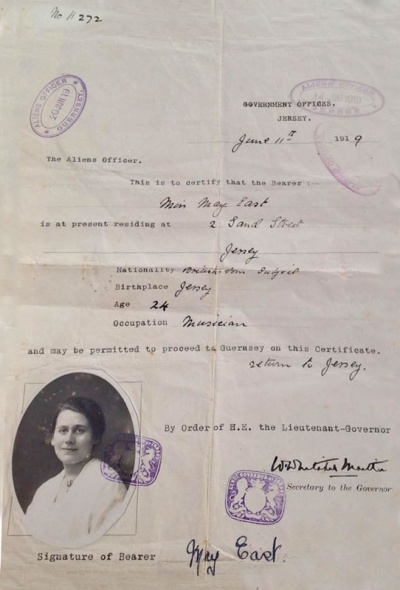 No 11272
ALIENS OFFICER
20 JUN 19
GUERNSEY.
ALIENS OFFICER
GOVERNMENT OFFICES,
JERSEY.
June 11th 1919
The Aliens Officer.
This is to certify that the Bearer :-
Miss May East
is at present residing at 2 Sand Street
Jersey
Nationality British
Birthplace Jersey
Age 24
Occupation Musician
and may be permitted to proceed to Guernsey on this Certificate.
return to Jersey.
By Order of H.E. the Lieutenant-Governor
Secretary to the Governor
Signature of Bearer May East.